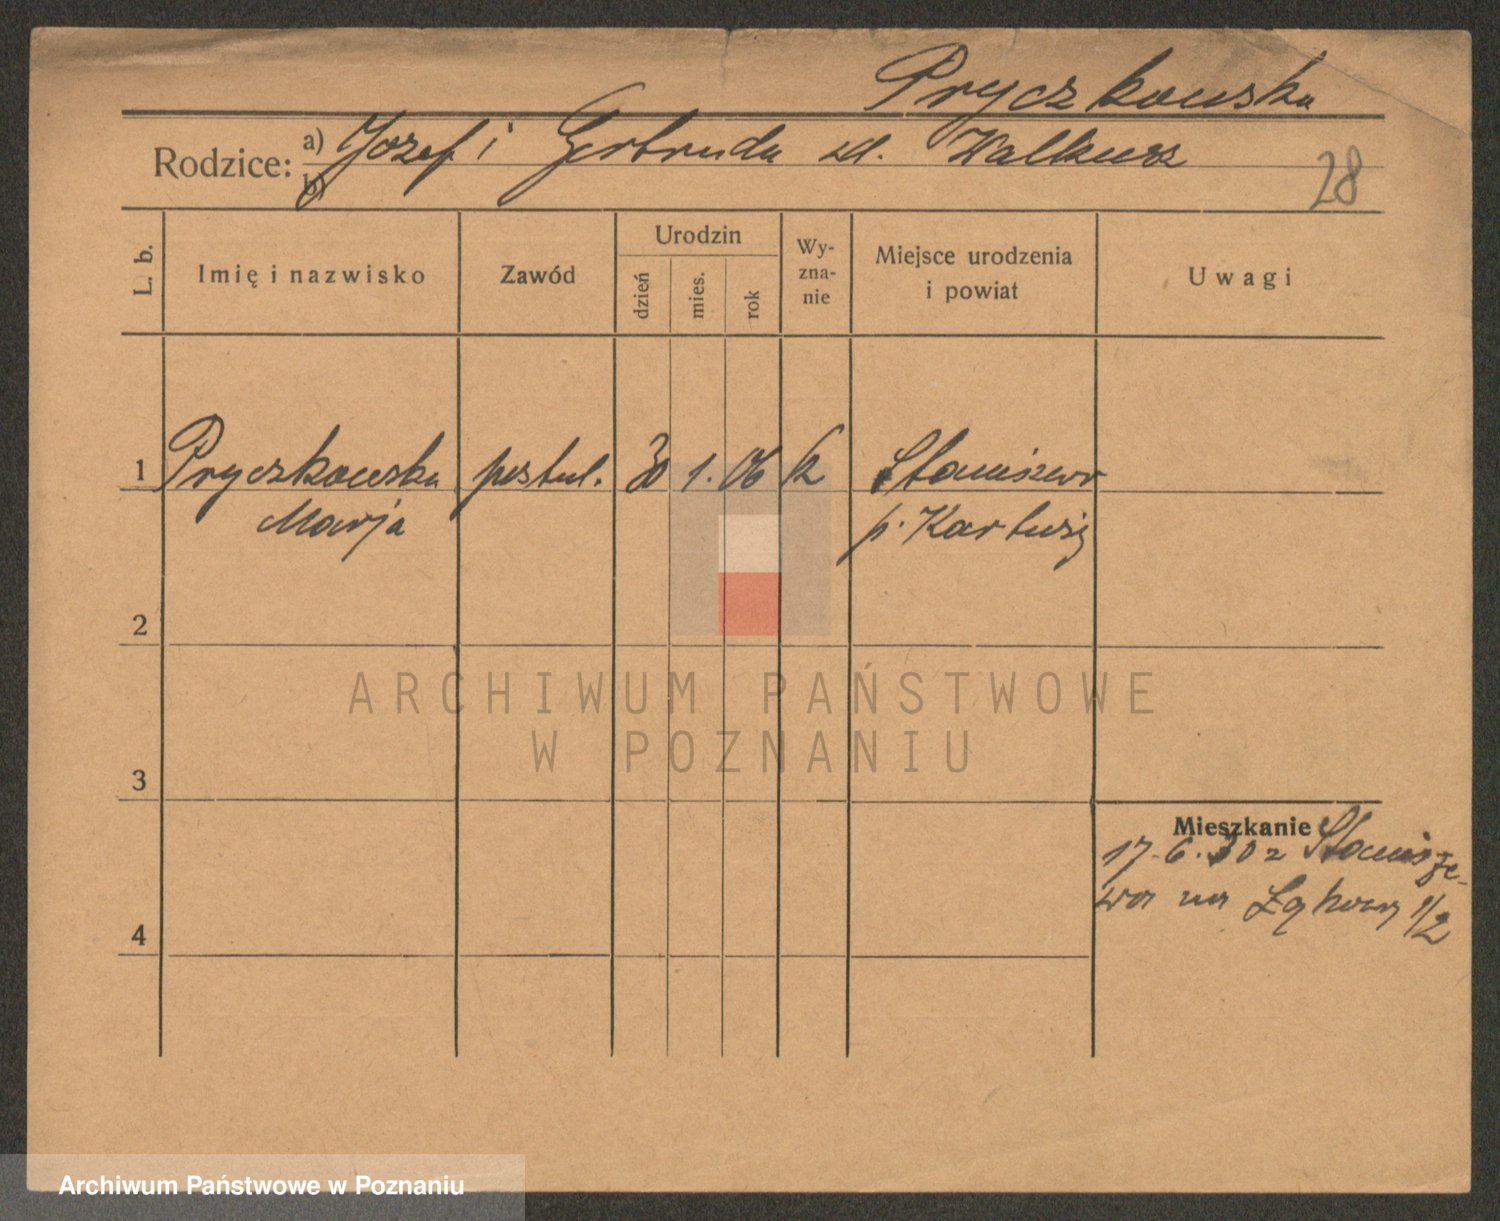 Pryczkowska
Rodzice: a) Józef i Gertruda zd. Walkusz
b)
28
L. b.
Imię i nazwisko
Zawód
Urodzin
dzień
mies.
rok
Wy-
zna-
nie
Miejsce urodzenia
i powiat
Uwagi
1 Pryczkowska postul. 30 1. 06 k Staniszewo
Marja p. Kartuzy
2
ARCHIWUM PAŃSTWOWE
W POZNANIU
3
Mieszkanie
17.6.30 z Stanisze-
wa na Łąkowy 1/2
4
Archiwum Państwowe w Poznaniu